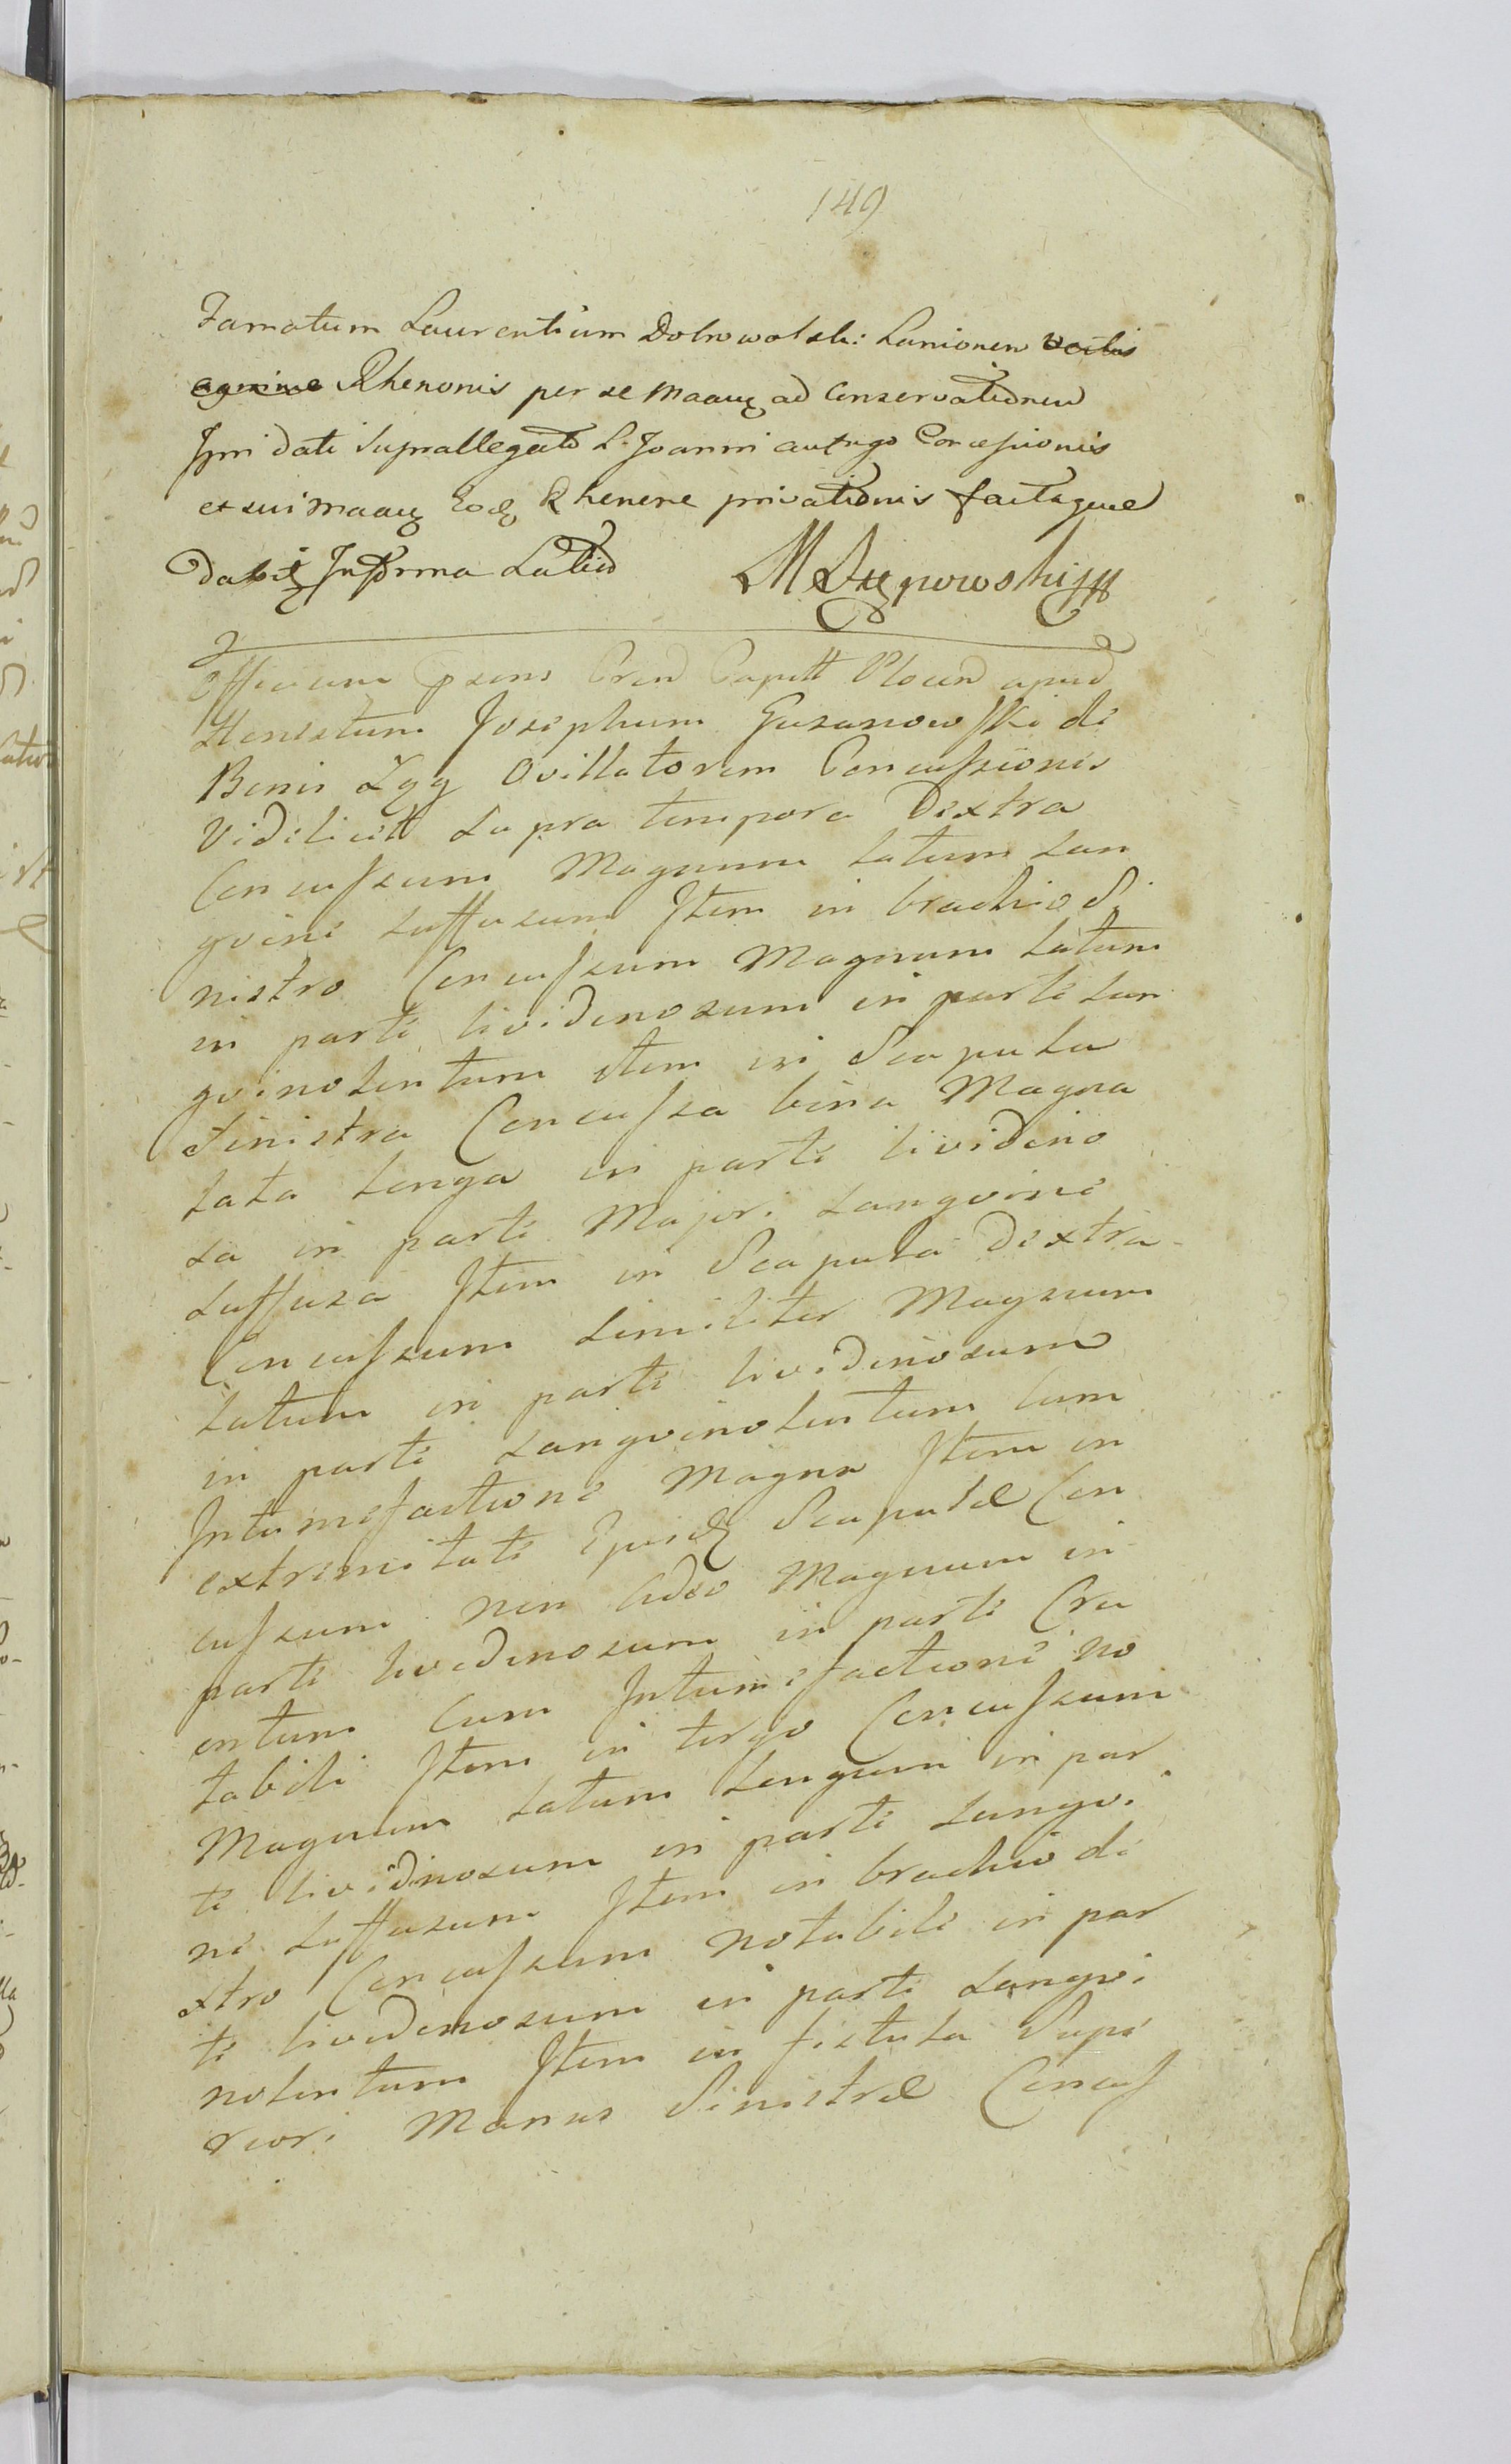 149
Famatum Laurentium Dobrowolski: Lanionem
Rhenonis per se ad Conservationem
dati suprallegato L. Joanni Concessionis
et sui Rhenone privationis factaque
In forma Latiò
M
Officium Prens Capitt Plocen apud
Honestum Josephum Guzanowski de
Bonis Łęg Ovillatorem Concussionis
Videlicet Supra tempora Dextra
Concussum Magnum Latum San
gvine suffusum Item in brachio Si
nistro Concussum Magnum Latum
in parte lividinosum in parte San
gvinolentum item in Scapula
Sinistra Concussa bina Magna
Lata Longa in parte lividino
sa in parte Majori Sangvine
Suffusa Item in Scapula Dextra
Concussum Similiter Magnum
Latum in parte lividinosum
in parte Sangvinolentum Cum
Intumefactione Magna Item in
extremitate Ejusdꝫ Scapulæ Con
cussum non Adeo Magnum in
parte lividinosum in parte Cru
entum Cum Intumefactione no
tabili Item in tergo Concussum
Magnum Latum Longum in par
te lividinosum in parte Sangvi
ne Suffusum Item in brachio de
xtro Concussum notabile in par
te lividinosum in parte Sangvi
nolentum Item in fistula Supe
riori Manus Sinistræ Concus